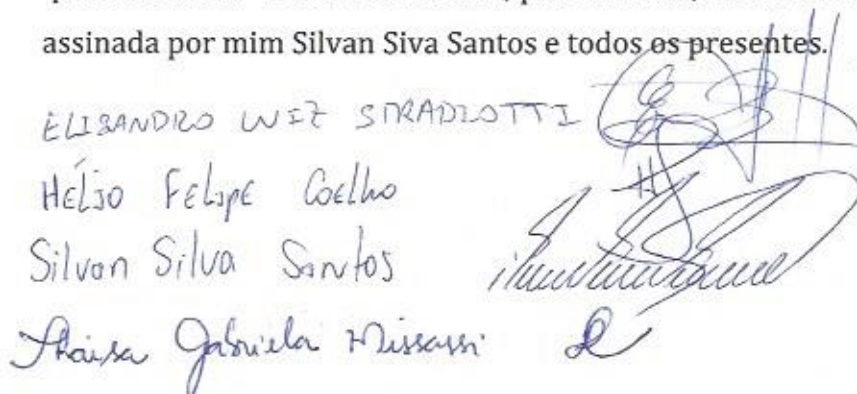 assinada por mim Silvan Siva Santos e todos os presentes.
ELISANDRO LUIZ STRADIOTTI
Hélio Felipe Coelho
Silvan Silva Santos
Thaisa Gabriela Missassi